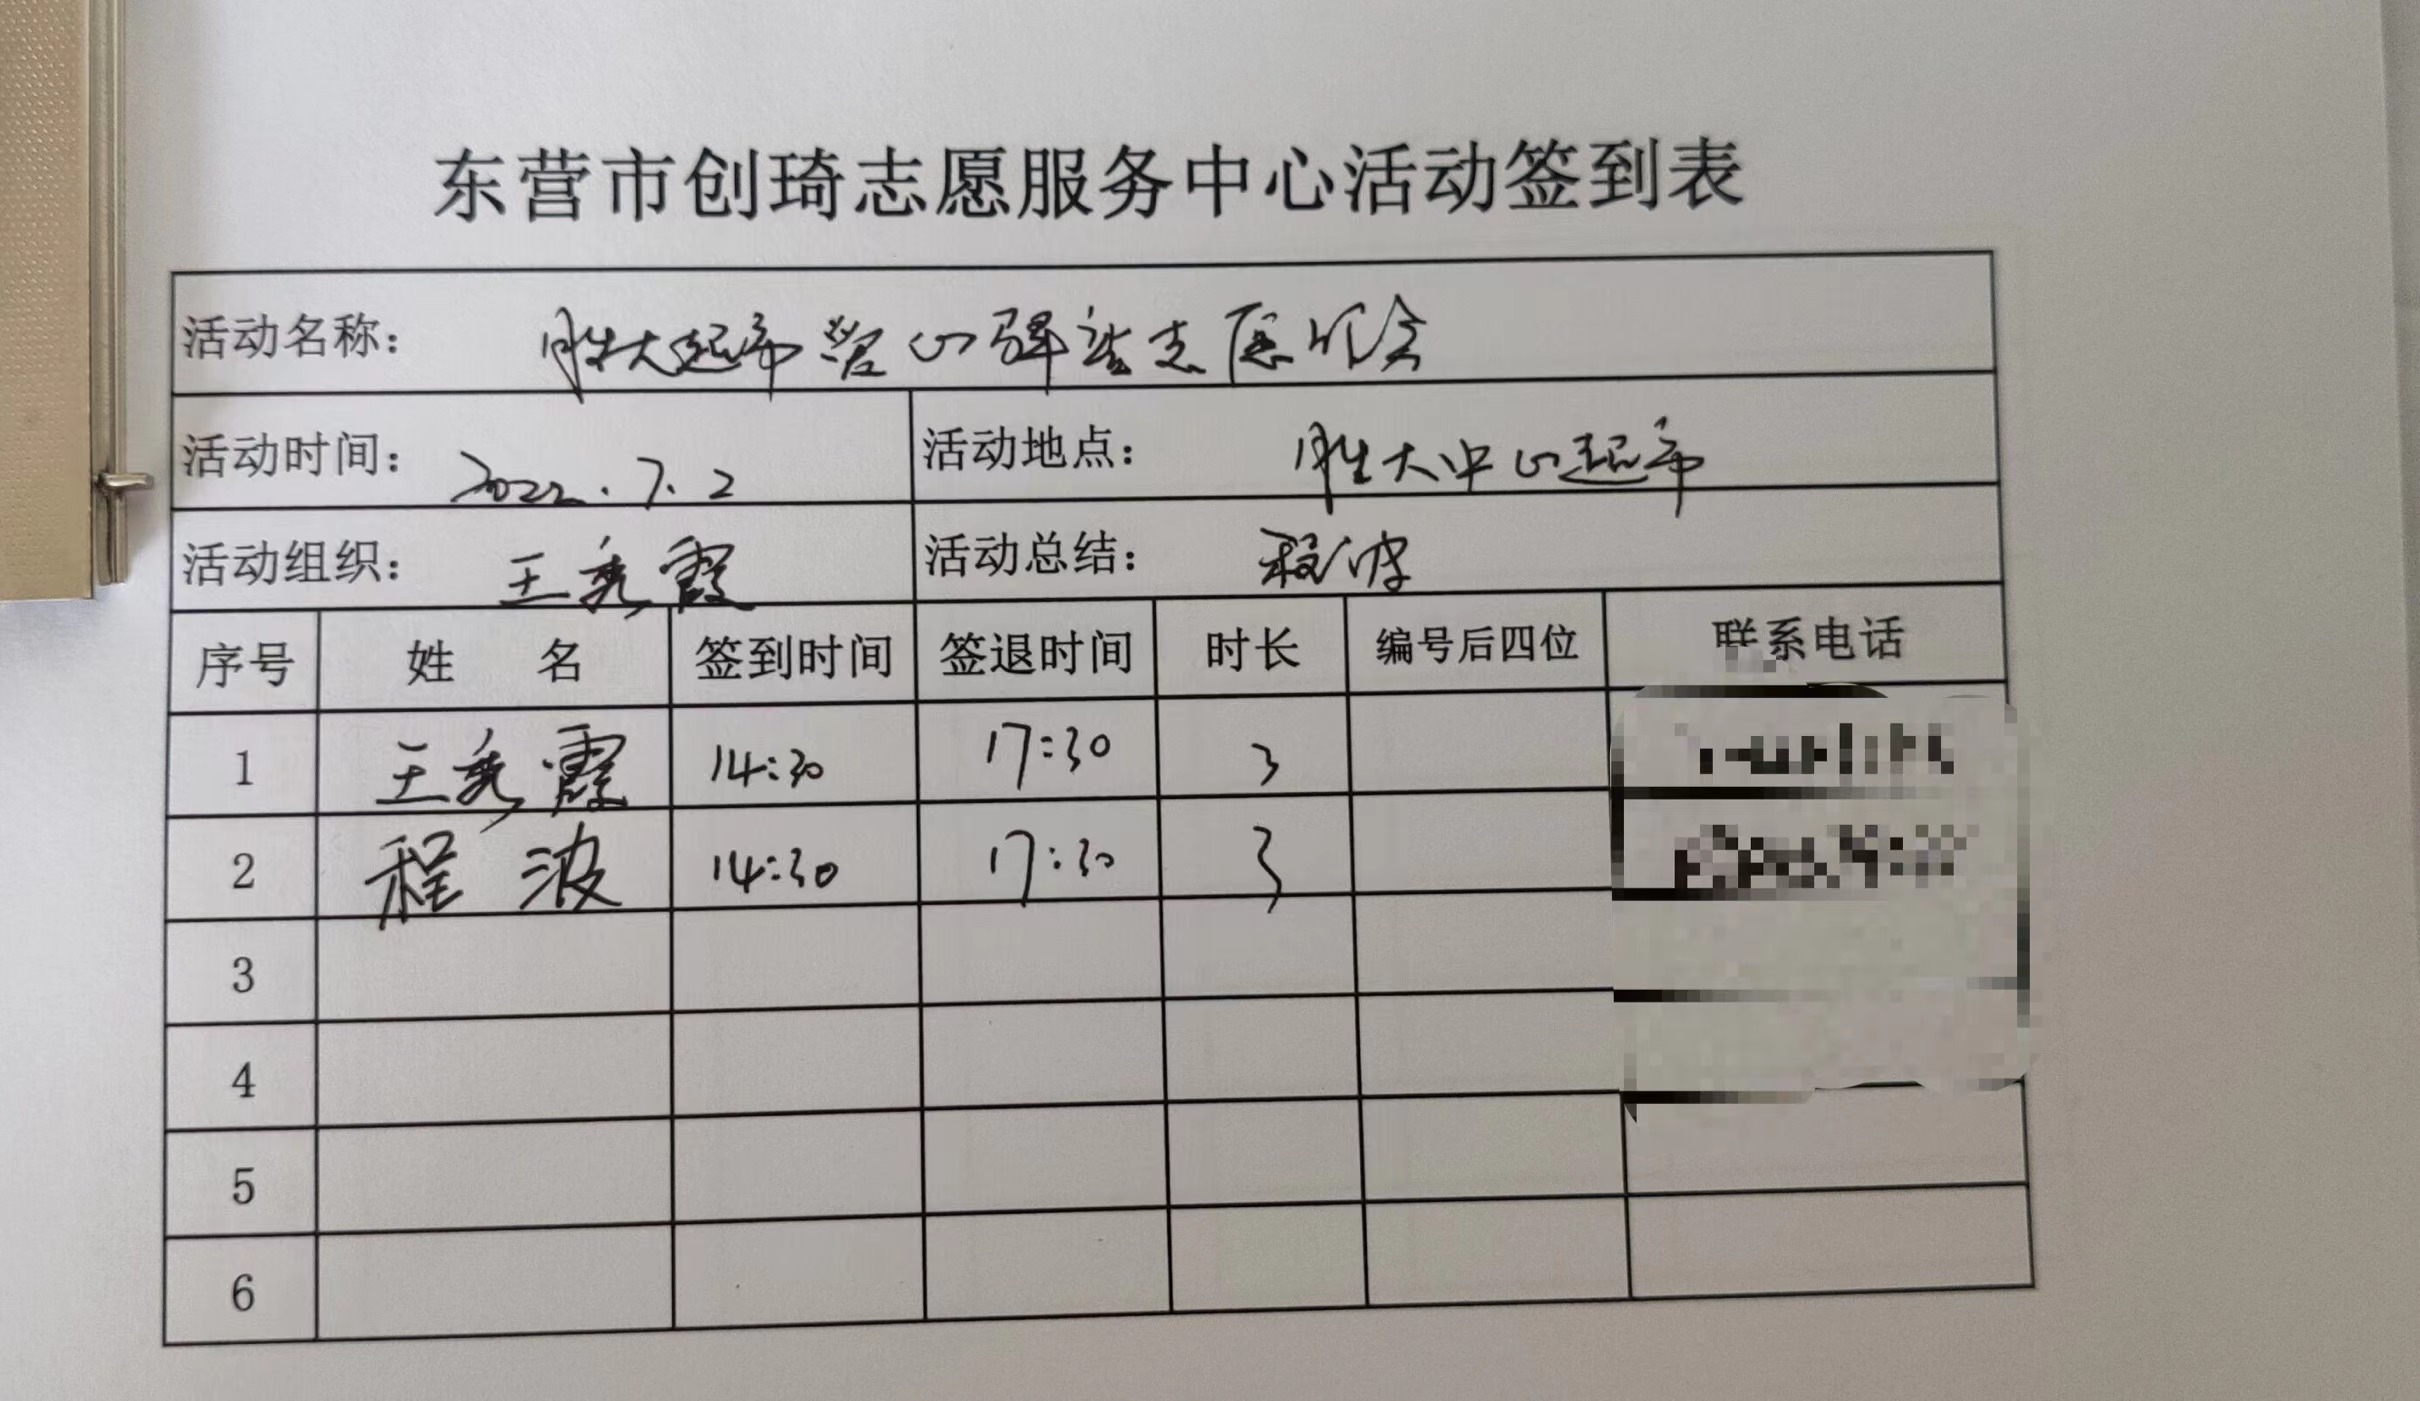 东营市创琦志愿服务中心活动签到表
活动名称： 胜大超市爱心驿站志愿服务
活动时间： 2022.7.2 活动地点： 胜大中心超市
活动组织： 王秀霞 活动总结： 程波
序号 姓 名 签到时间 签退时间 时长 编号后四位 联系电话
1 王秀霞 14:30 17:30 3
2 程波 14:30 17:30 3
3
4
5
6